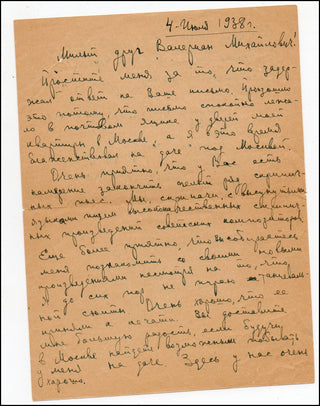 4-Июля 1938 г.
Милый друг Валериан Михайлович!
Простите меня за то, что задер-
жал ответ на Ваше письмо. Произошло
это потому, что письмо спокойно лежа-
ло в почтовом ящике у дверей моей
квартиры в Москве, а я в это время
блаженствовал на "даче" под Москвой.
Очень приятно, что у Вас есть
намерение закончить целый ряд скрипич-
ных пьес. Мы, скрипачи, с высунутыми
языками ищем высокохудожественных скрипич-
ных произведений советских композиторов
Еще более приятно, что Вы собираетесь
меня познакомить со своими новыми
произведениями несмотря на то, что,
до сих пор не играю
ной сюиты. Очень хорошо, что ее
приняли к печати. Вы доставите
мне большую радость, если будучи
в Москве найдете возможным побывать
у меня на даче. Здесь у нас очень
хорошо.